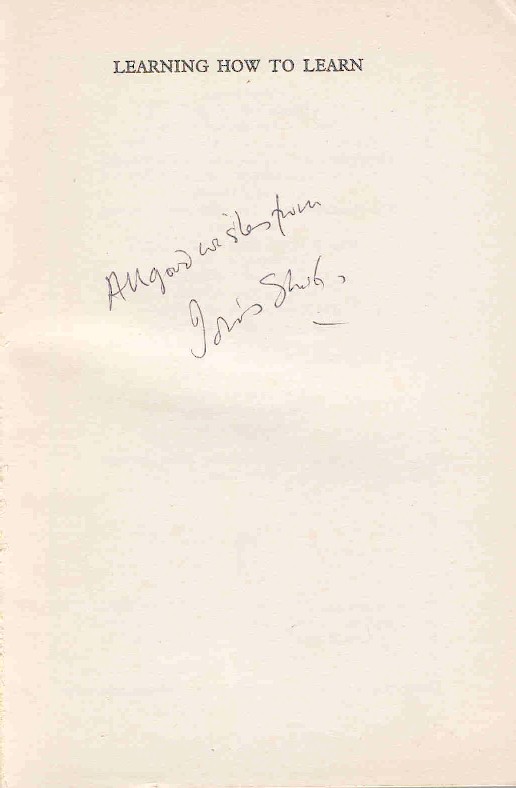 LEARNING HOW TO LEARN
All good wishes from
Idries Shah